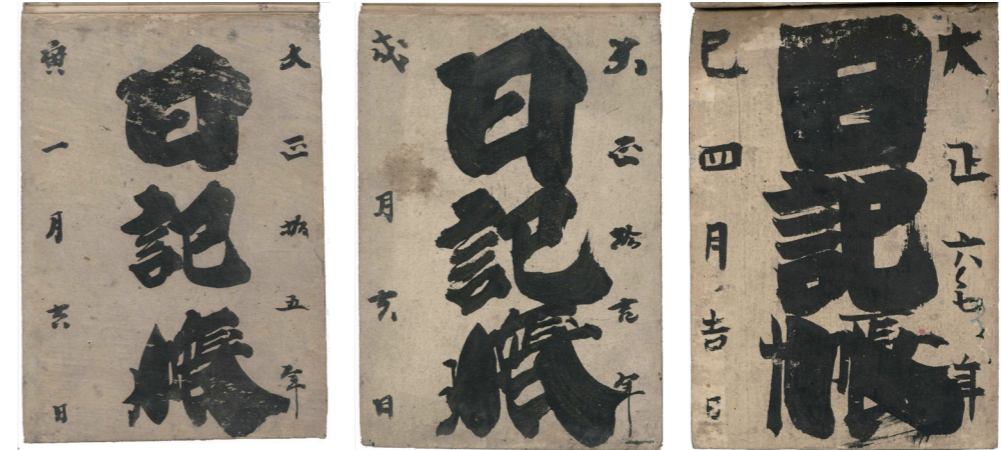 大正拾五年
日記帳
寅一月吉日
大正拾壱年
日記帳
戌月吉日
大正六七年
日記帳
巳四月吉日